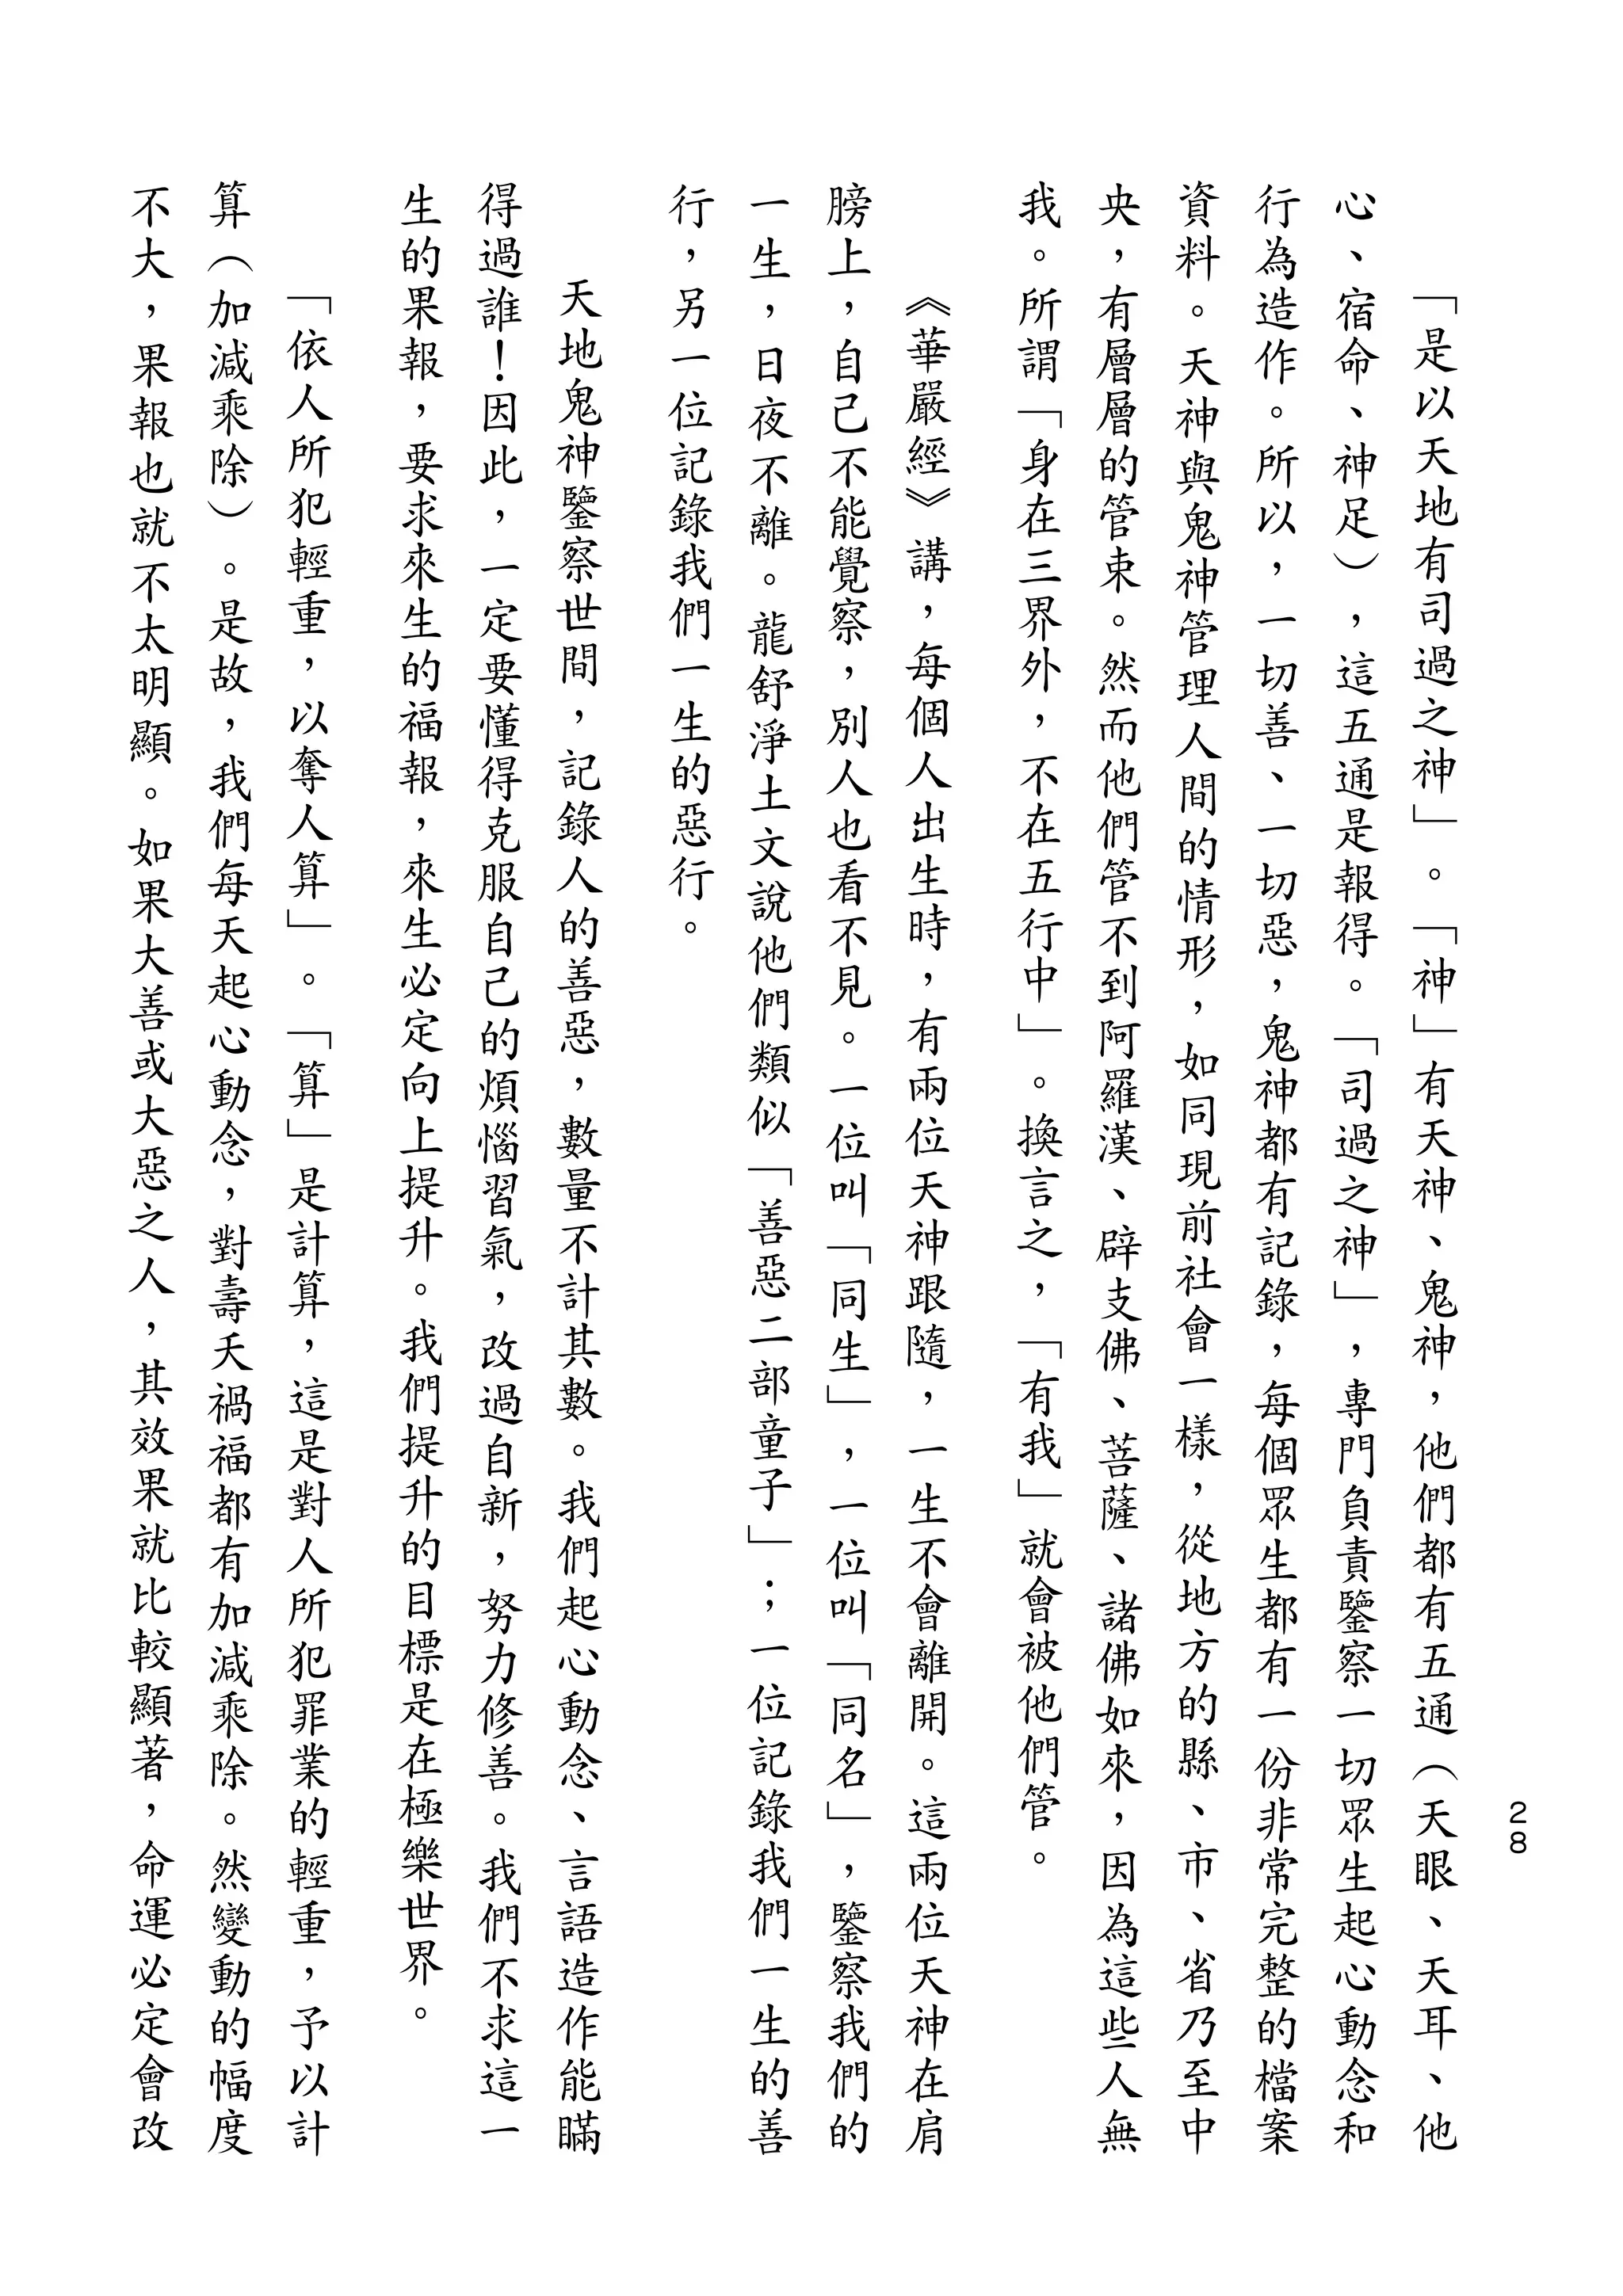 28
「是以天地有司過之神」。「神」有天神、鬼神，他們都有五通（天眼、天耳、他
心、宿命、神足），這五通是報得。「司過之神」，專門負責鑒察一切眾生起心動念和
行為造作。所以，一切善、一切惡，鬼神都有記錄，每個眾生都有一份非常完整的檔案
資料。天神與鬼神管理人間的情形，如同現前社會一樣，從地方的縣、市、省乃至中
央，有層層的管束。然而他們管不到阿羅漢、辟支佛、菩薩、諸佛如來，因為這些人無
我。所謂「身在三界外，不在五行中」。換言之，「有我」就會被他們管。
《華嚴經》講，每個人出生時，有兩位天神跟隨，一生不會離開。這兩位天神在肩
膀上，自己不能覺察，別人也看不見。一位叫「同生」，一位叫「同名」，鑒察我們的
一生，日夜不離。龍舒淨土文說他們類似「善惡二部童子」；一位記錄我們一生的善
行，另一位記錄我們一生的惡行。
天地鬼神鑒察世間，記錄人的善惡，數量不計其數。我們起心動念、言語造作能瞞
得過誰！因此，一定要懂得克服自己的煩惱習氣，改過自新，努力修善。我們不求這一
生的果報，要求來生的福報，來生必定向上提升。我們提升的目標是在極樂世界。
「依人所犯輕重，以奪人算」。「算」是計算，這是對人所犯罪業的輕重，予以計
算（加減乘除）。是故，我們每天起心動念，對壽夭禍福都有加減乘除。然變動的幅度
不大，果報也就不太明顯。如果大善或大惡之人，其效果就比較顯著，命運必定會改